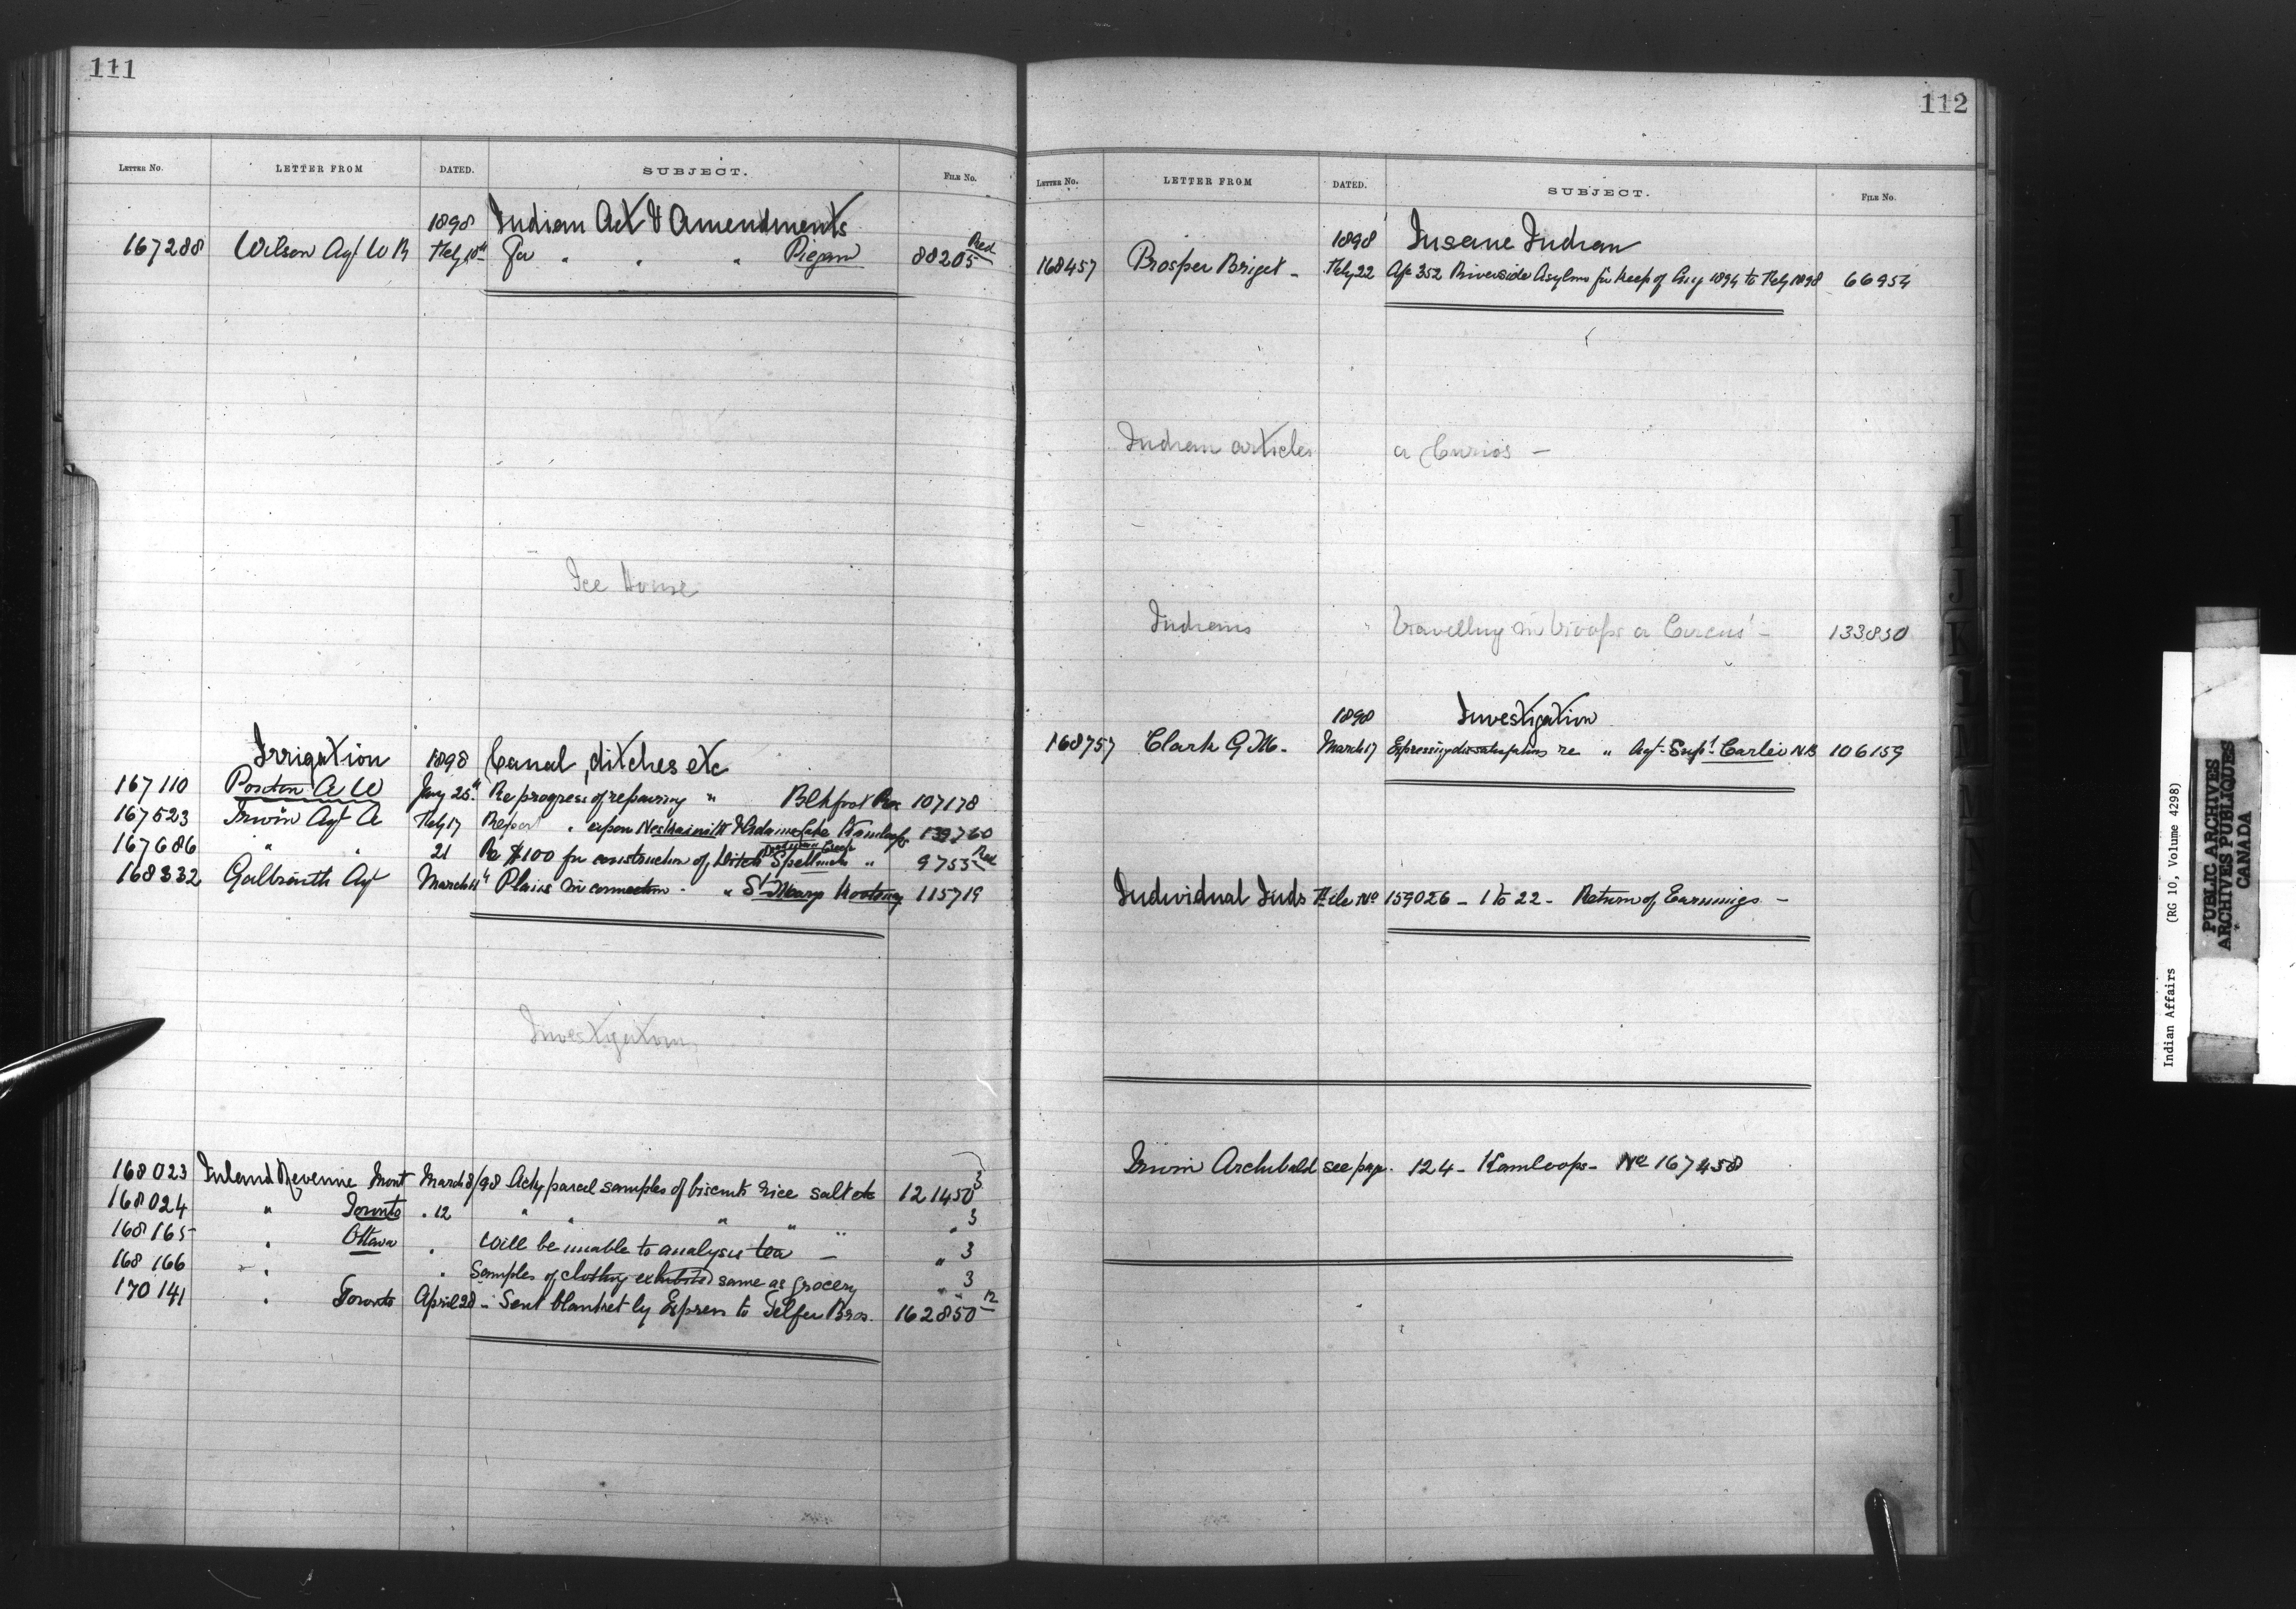 111
LETTER No. LETTER FROM DATED. SUBJECT. FILE No.
1898 Indian Act & Amendments
167288 Wilson Agt W R Feby 10th For " " " Piegan 88205 Red
Ice House
Irrigation 1898 Canal, ditches etc
167110 A W Jany 25th Re progress of repairing " Blkfoot Res 107178
167523 Irwin Agt A Feby 17 Report " upon & Adams Lake Kamloops
167686 " " 21 Re $100 for construction of Ditch " 9755 Red
168332 Galbraith Agt March 11th Plans in connection - " St Marys Kootenay 115719
Investigation
168023 Inland Revenue Mont March 8/98 Ackg parcel samples of biscuits rice salt etc 121450 3
168024 " Toronto " 12 " " " " 3
168165 " Ottawa " Will be unable to analysis tea — " " 3
168166 " " Samples of clothing exhibited same as grocery " 3
170141 " Toronto April 28 - Sent blanket by Express to Telfer Bros. 162850 12
112
LETTER No. LETTER FROM DATED. SUBJECT. FILE No.
1898 Insane Indian
168457 Prosper Briget - Feby 22 352 Riverside Asylum for keep of 1894 to Feby 1898 66954
Indian articles a Curios —
Indians " travelling in troops a Circus' — 133850
1898 Investigation
168757 Clark G M. March 17 Expressing dissatisfaction re " Agt - Supt Carter N.B 106159
Individual Inds File No 159026 - 1 to 22 - Return of Earnings -
Irwin Archibald see page. 124 - Kamloops - No 167458
I
J
K
L
M
Indian Affairs (RG 10, Volume 4298)
PUBLIC ARCHIVES
ARCHIVES PUBLIQUES
CANADA